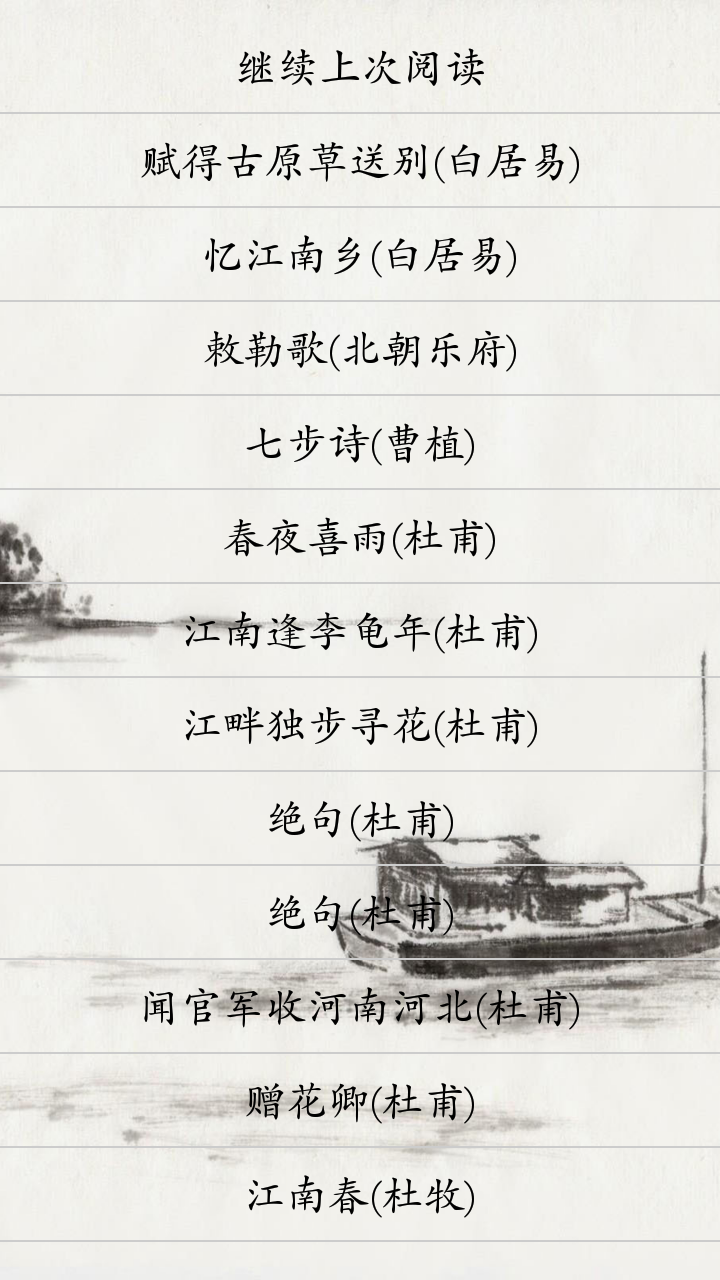 继续上次阅读
赋得古原草送别(白居易)
忆江南乡(白居易)
敕勒歌(北朝乐府)
七步诗(曹植)
春夜喜雨(杜甫)
江南逢李龟年(杜甫)
江畔独步寻花(杜甫)
绝句(杜甫)
绝句(杜甫)
闻官军收河南河北(杜甫)
赠花卿(杜甫)
江南春(杜牧)